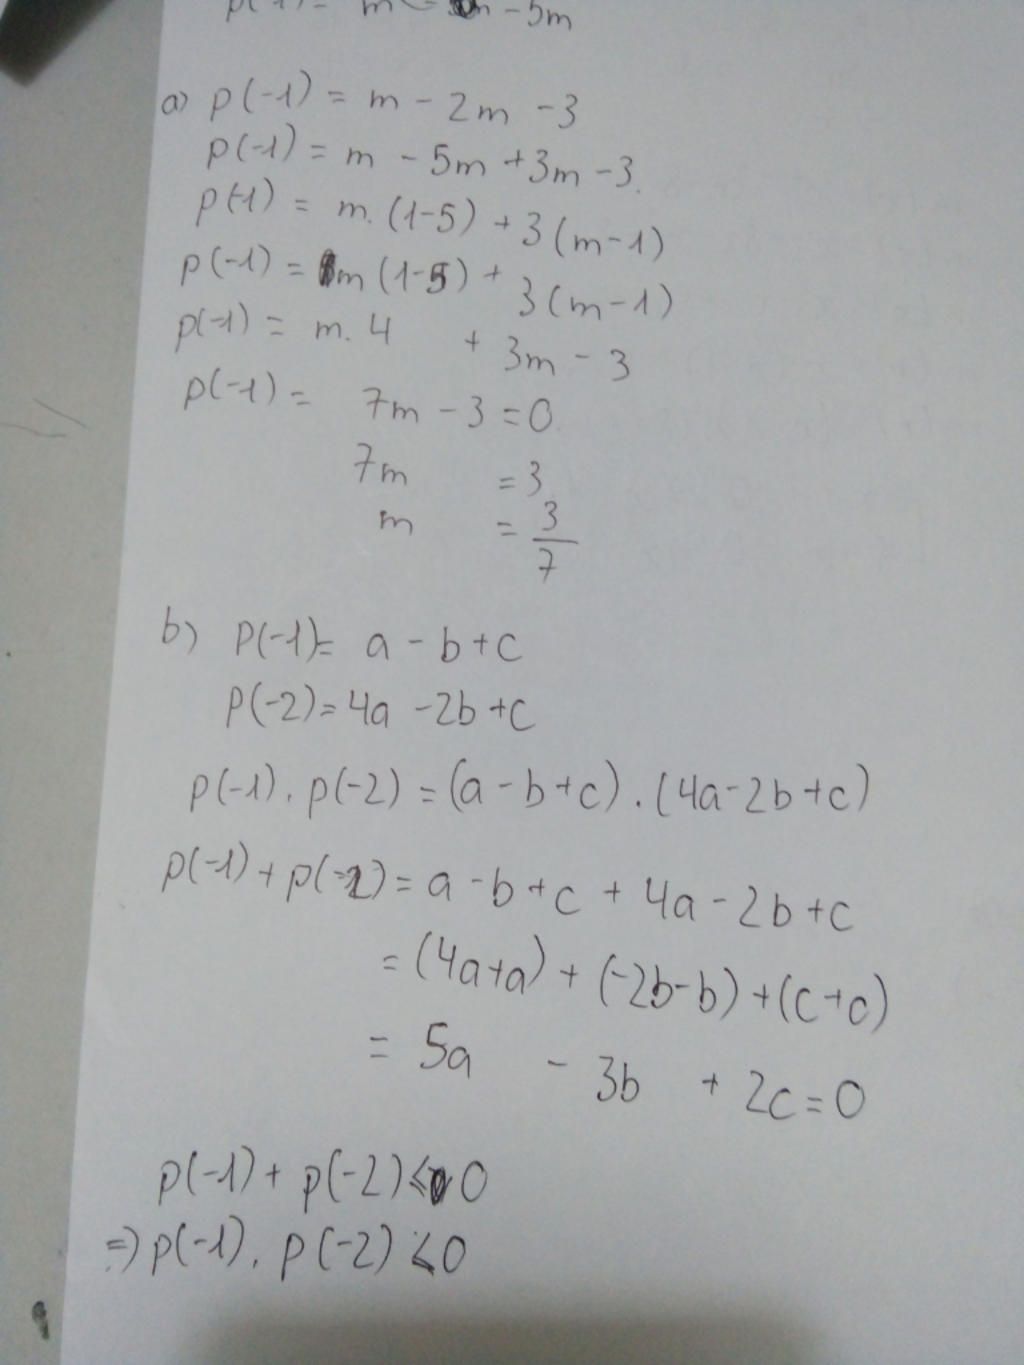 p(-1) = m - m - 5m
a) p(-1) = m - 2m - 3
p(-1) = m - 5m + 3m - 3.
p(-1) = m. (1-5) + 3(m-1)
p(-1) = m (1-5) + 3(m-1)
p(-1) = m. 4 + 3m - 3
p(-1) = 7m - 3 = 0
7m = 3
m = 3/7
b) P(-1)= a - b + c
P(-2) = 4a - 2b + c
p(-1). p(-2) = (a - b + c). (4a - 2b + c)
p(-1) + p(-2) = a - b + c + 4a - 2b + c
= (4a+a) + (-2b-b) + (c+c)
= 5a - 3b + 2c = 0
p(-1) + p(-2) ≤ 0
=> p(-1). p(-2) ≤ 0